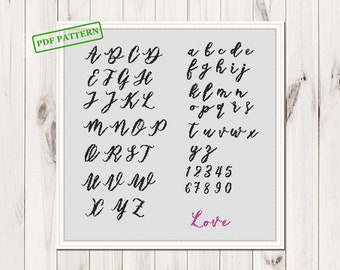 PDF PATTERN
A B C D
E F G H
I J K L
M N O P
Q R S T
U V W
X Y Z
a b c d e
f g h i j
k l m n
o p q r s
t u v w x
y z
1 2 3 4 5
6 7 8 9 0
Love